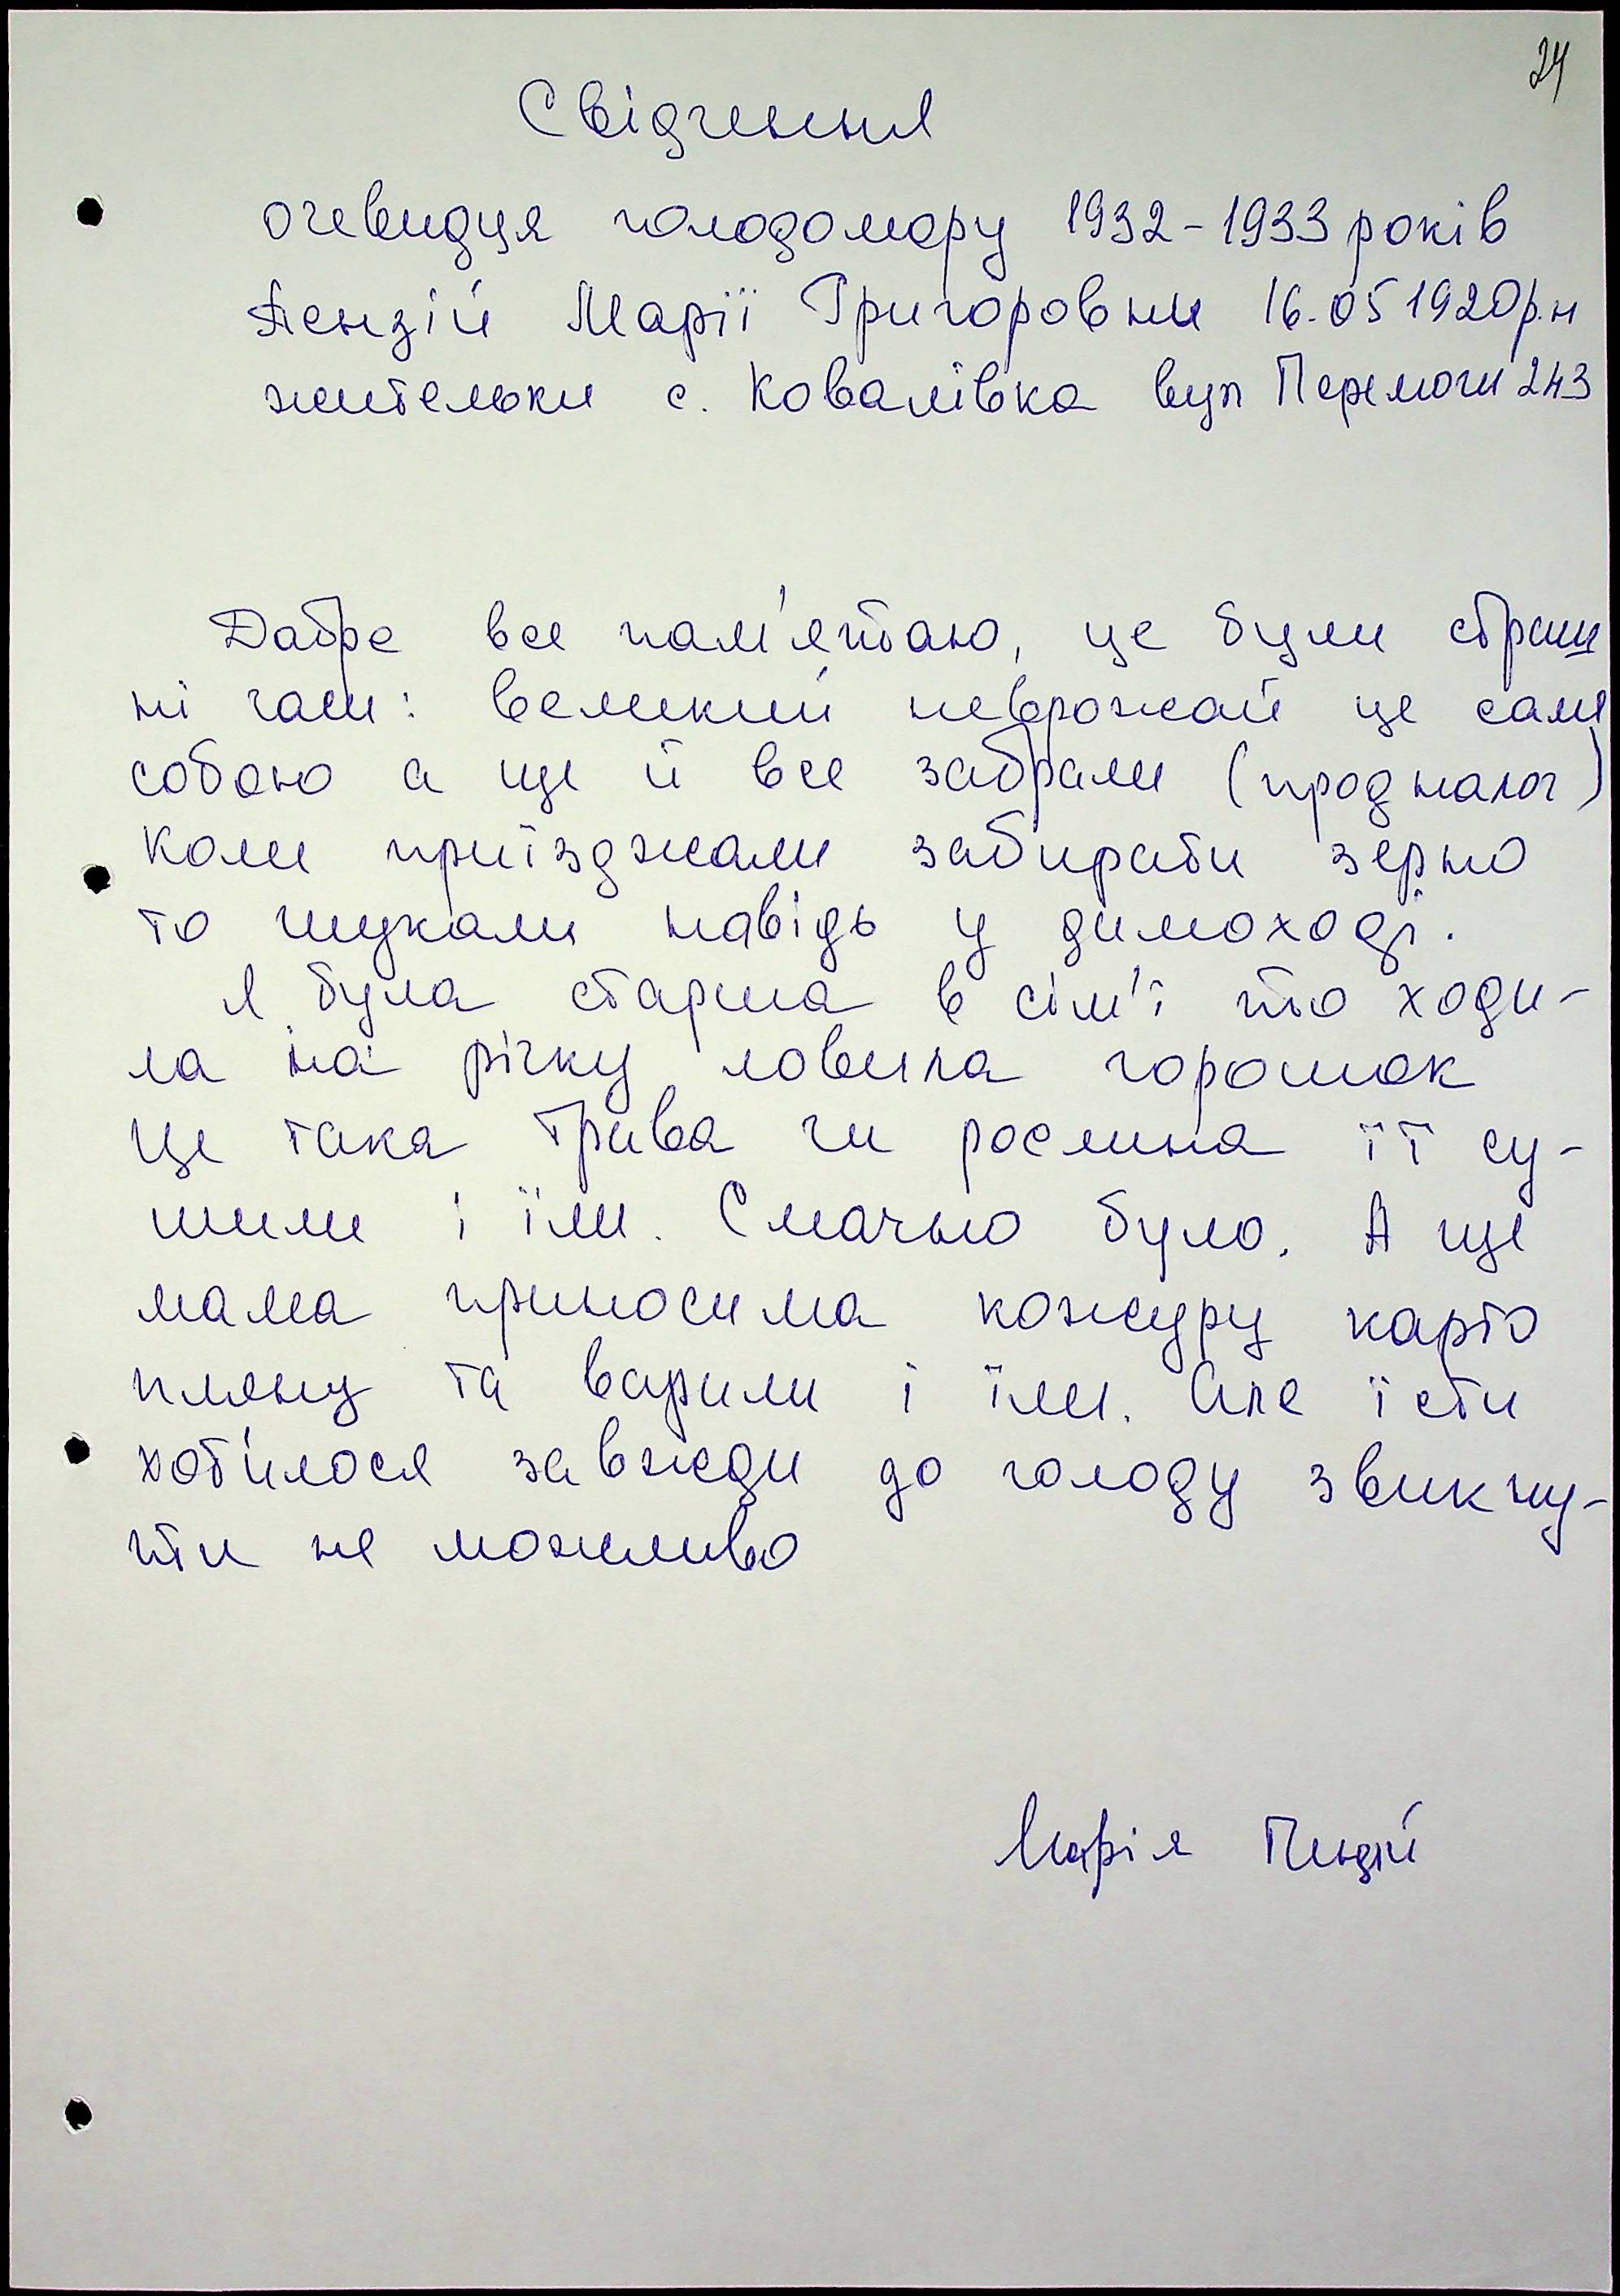 24
Свідчення
очевидця голодомору 1932-1933 років
Пензій Марії Григоровни 16.05 1920р.н
жительки с. Ковалівка вул Перемоги 243
Добре все пам'ятаю, це були страш
ні часи: великий неврожай це саме
собою а ще й все забрали (проднолог)
Коли приїзджали забирати зерно
то шукали навідь у димоході.
Я була старша в сім'ї то ходи-
ла на річку ловила горошок
Це така трава чи рослина її су-
шили і їли. Смачно було. А ще
мама приносила кожуру карто
пляну та варили і їли. Але їсти
хотілося завжди до голоду звикну-
ти не можливо
Марія Пензій